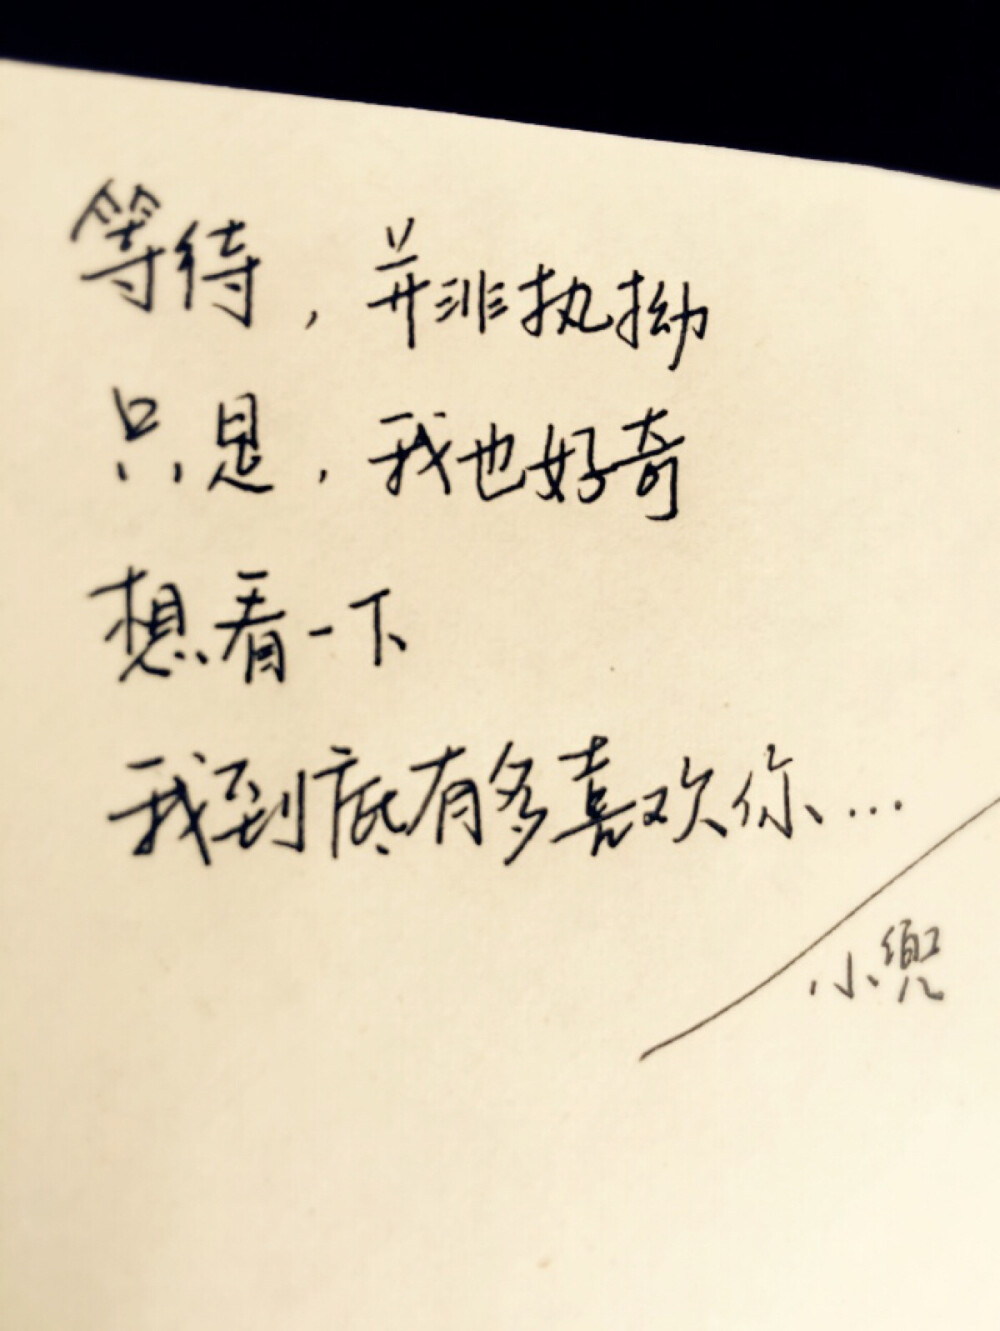 等待，并非执拗
只是，我也好奇
想看一下
我到底有多喜欢你...
小兜